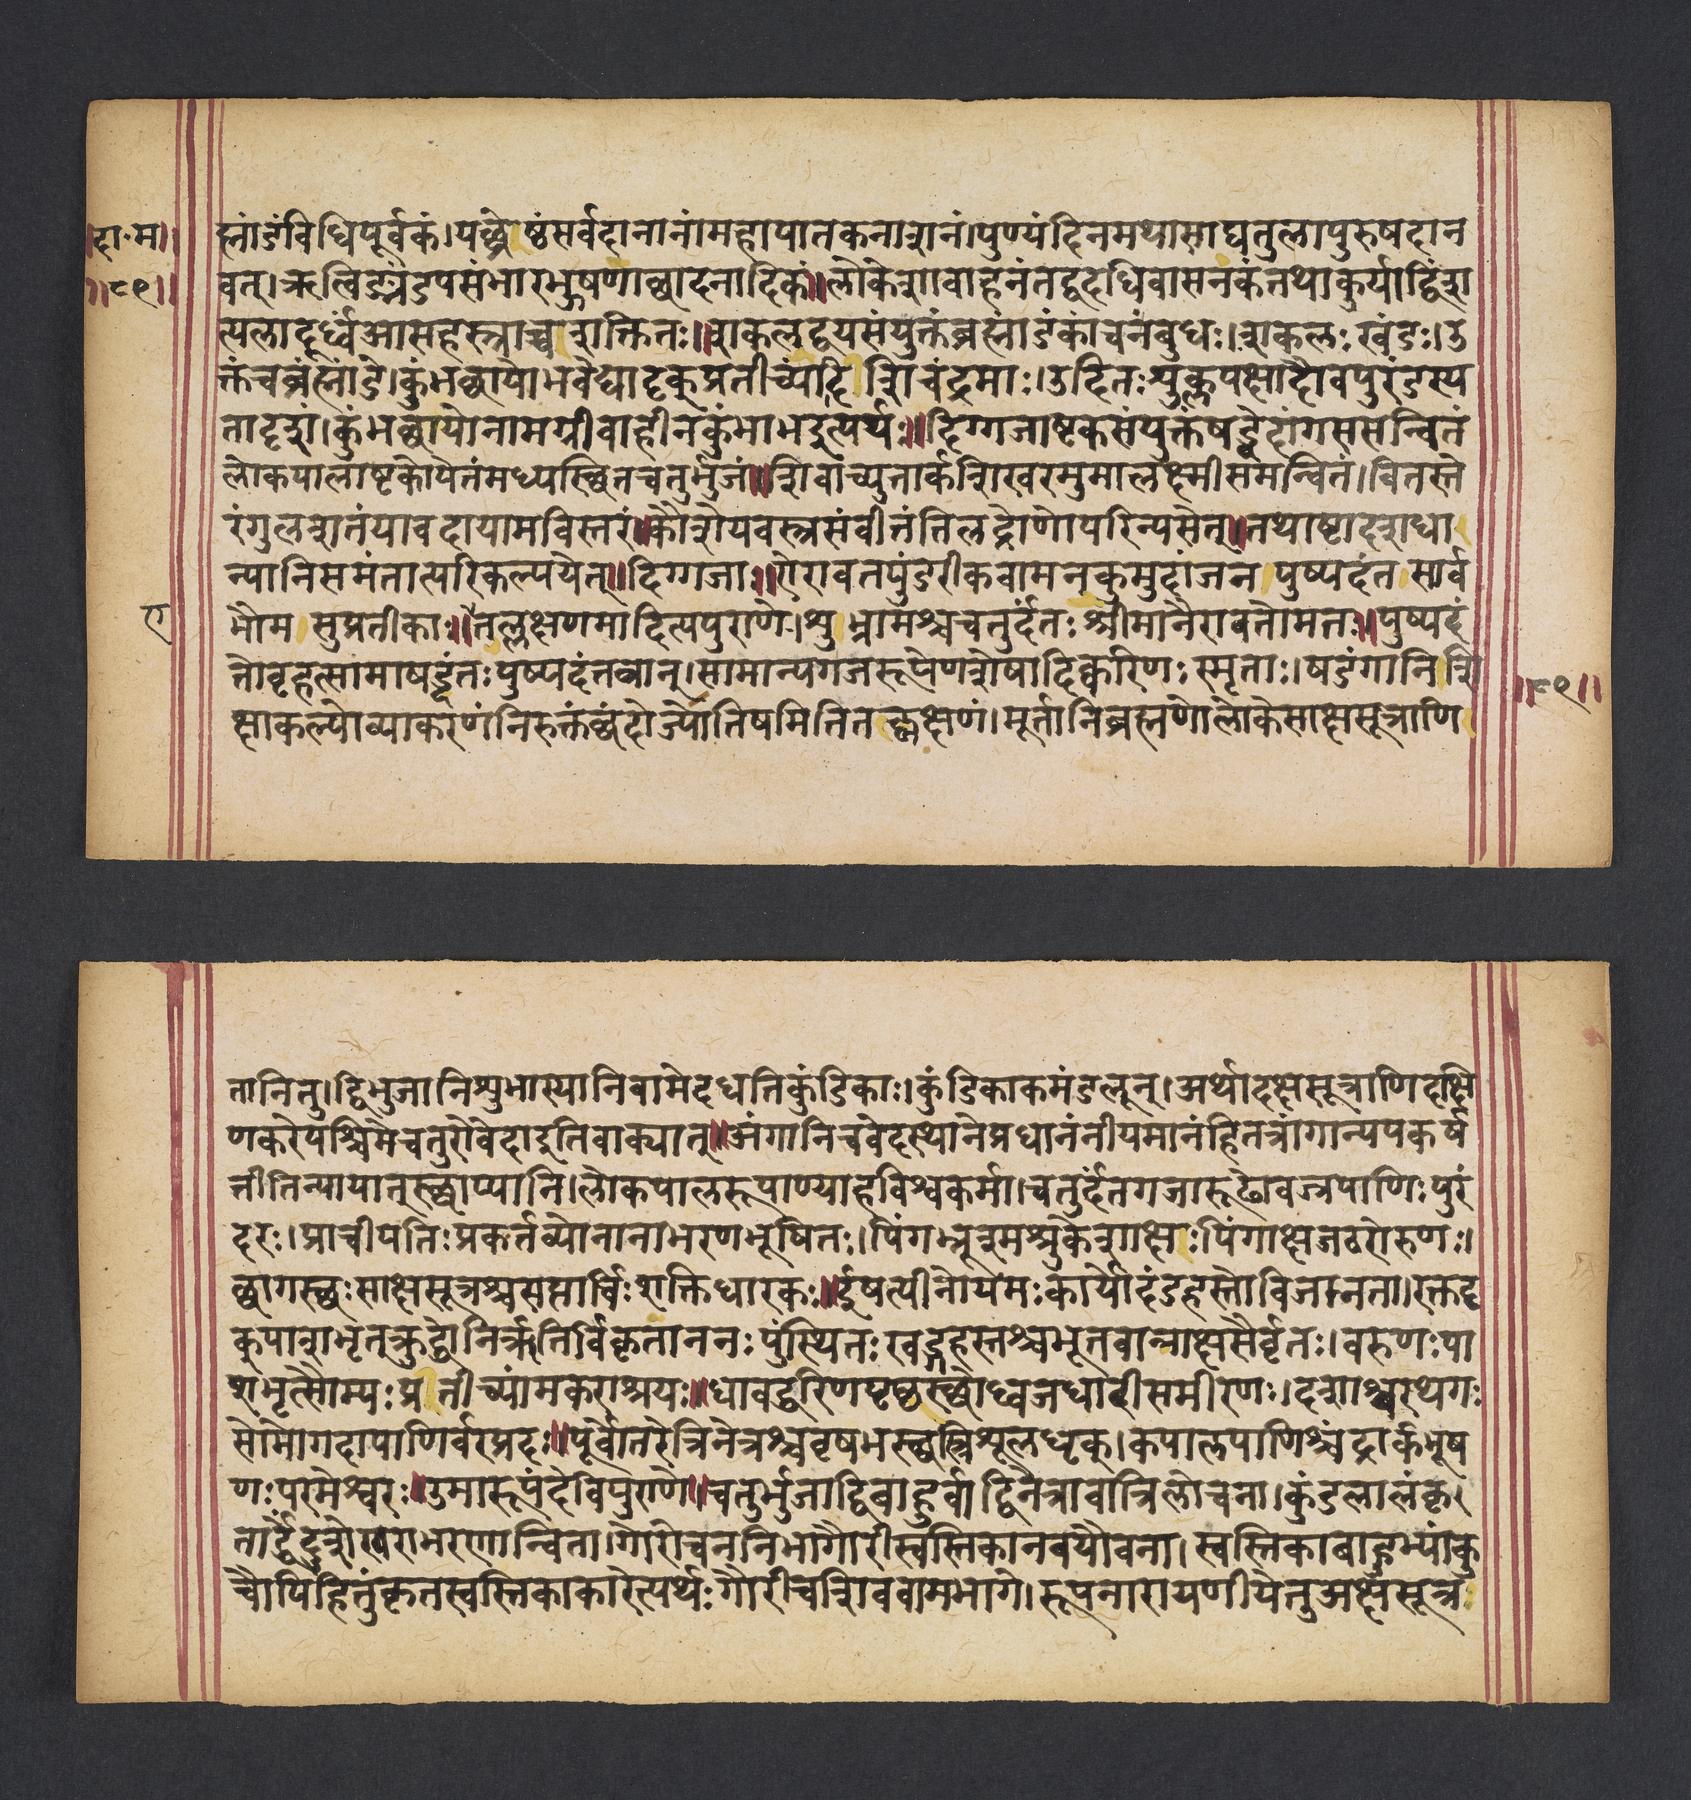 दा.म
॥८९॥
ह्मांडंविधिपूर्वकं।यच्छ्रेष्ठंसर्वदानानांमहापातकनाशनं।पुण्यंदिनमथासाद्यतुलापुरुषदान
वत्।ऋत्विङ्मंडपसंभारभुषणाच्छादनादिकं॥लोकेशावाहनंतद्वदधिवासनकंतथाकुर्याद्विंश
त्पलादूर्ध्वंआसहस्त्राच्चशक्तितः॥शकलद्वयसंयुक्तंब्रह्मांडंकांचनंबुधः।शकलः खंडः।उ
क्तंचब्रंह्मांडे।कुंभच्छायोभवेद्यादृक्प्रतीच्यांदिशिचंद्रमाः।उदितःशुक्लपक्षादौवपुरंडस्य
तादृशं।कुंभच्छायोनामग्रीवाहीनकुंभाभइत्यर्थः॥दिग्गजाष्टकसंयुक्तंषड्वेदांगससन्वितं
लोकपालाष्टकोपेतंमध्यस्थितचतुर्मुजं॥शिवाच्युतार्कशिखरमुमालक्ष्मीसमन्वितं।वितस्ते
रंगुलशतंयावदायामविस्तरं॥कौशेयवस्त्रसंवीतंतिलद्रोणोपरिन्यसेत्॥तथाष्टादशधा
न्यानिसमंतात्परिकल्पयेत्॥दिग्गजाः॥ऐरावतपुंडरीकवामनकुमुदांजन पुष्पदंत सार्व
भौम सुप्रतीकाः॥तल्लक्षणमादित्यपुराणे।शुभ्राभश्चचतुर्दंतः श्रीमानैरावतोमतः॥पुष्पदं
ए
तोवृहत्सामाषड्दंतःपुष्पदंतवान्।सामान्यगजरूपेणशेषादिक्करिणः स्मृताः।षडंगानिशि
क्षाकल्पोव्याकरणंनिरुक्तंच्छंदोज्योतिषमितितल्लक्षणं।मूर्तानिब्रह्मणोलोकेसाक्षसूत्राणि
॥८९॥
तानितु।द्विभुजानिशुभास्यानिवामेदधतिकुंडिकाः।कुंडिकाकमंडलून्।अर्थादक्षसूत्राणिदक्षि
णकरेपश्चिमेचतुरोवेदाइतिवाक्यात्॥अंगानिचवेदस्थानेप्रधानंनीयमानंहितत्रांगान्यपकर्ष
तीतिन्यायात्स्छाप्यानि।लोकपालरूपाण्याहविश्वकर्मा।चतुर्दंतगजारूढोवज्रपाणिःपुरं
दरः।प्राचीपतिःप्रकर्तव्योनानाभरणभूषितः।।पिंगभ्रूश्मश्रुकेशाक्षःपिंगाक्षजठरोरुणः।
च्छागस्छःसाक्षसूत्रश्चसप्तार्चिःशक्तिधारकः॥ईषत्पीनोयमःकार्योदंडहस्तोविजानता।रक्तदृ
क्पाशभृत्क्रुद्धोनिर्ऋतिर्विकृताननः पुंस्थितः खड्गहस्तश्चभूतवान्राक्षसैर्वृतः।वरुणःपा
शभृत्सौम्यःप्रतीच्यांमकराश्रयः॥धावद्धरिणपृष्ठस्छोध्वजधारीसमीरणः।दशाश्वरथगः
सोमोगदापाणिर्वरप्रदः॥पूर्वोतरेत्रिनेत्रश्चवृषभस्छस्त्रिशूलधृक्।कपालपाणिश्चंद्रार्कभूष
णःपरमेश्वरः॥उमारूपंदेविपुराणे॥चतुर्भुजाद्विबाहुर्वाद्विनेत्रावात्रिलोचना।कुंडलालंकृ
तार्द्धेंदुशेखराभरणान्विता।गोरोचननिभागौरीस्वस्तिकानवयौवना।स्वस्तिकाबाहुभ्यांकु
चोपिहितुंकृतस्वस्तिकाकारेत्यर्थःगौरीचशिववामभागे।रूपनारायणीयेतुअक्षसूत्रं